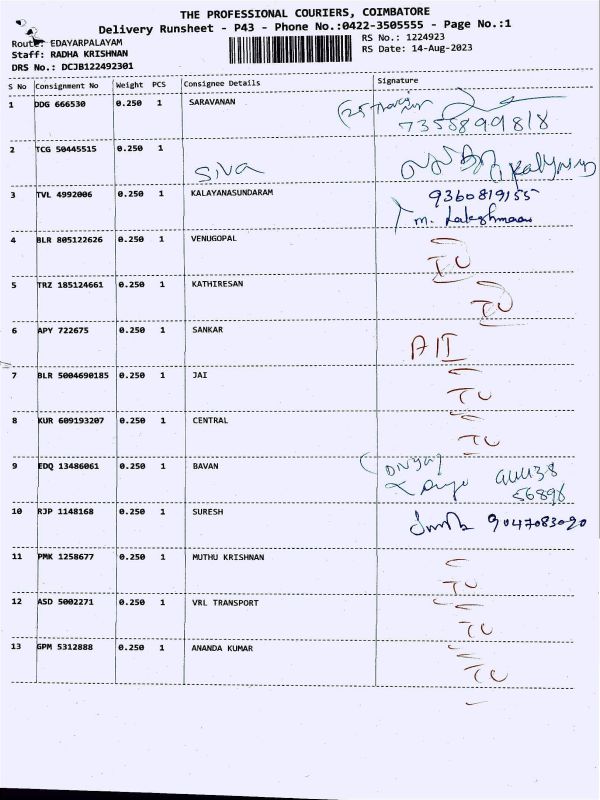 THE PROFESSIONAL COURIERS, COIMBATORE
Delivery Runsheet - P43 - Phone No.:0422-3505555 - Page No.:1
Route: EDAYARPALAYAM
RS No.: 1224923
Staff: RADHA KRISHNAN
RS Date: 14-Aug-2023
DRS No.: DCJB122492301
S No Consignment No Weight PCS Consignee Details Signature
1 DDG 666530 0.250 1 SARAVANAN
7358899818
2 TCG 50445515 0.250 1
Siva
3 TVL 4992006 0.250 1 KALAYANASUNDARAM 9360819155
m. Lakshmanan
4 BLR 805122626 0.250 1 VENUGOPAL
IU
5 TRZ 185124661 0.250 1 KATHIRESAN
IU
6 APY 722675 0.250 1 SANKAR
AIT
7 BLR 5004690185 0.250 1 JAI
TU
8 KUR 609193207 0.250 1 CENTRAL
TU
9 EDQ 13486061 0.250 1 BAVAN
56896
10 RJP 1148168 0.250 1 SURESH 9047083090
11 PMK 1258677 0.250 1 MUTHU KRISHNAN
TU
12 ASD 5002271 0.250 1 VRL TRANSPORT
TU
13 GPM 5312888 0.250 1 ANANDA KUMAR
TU